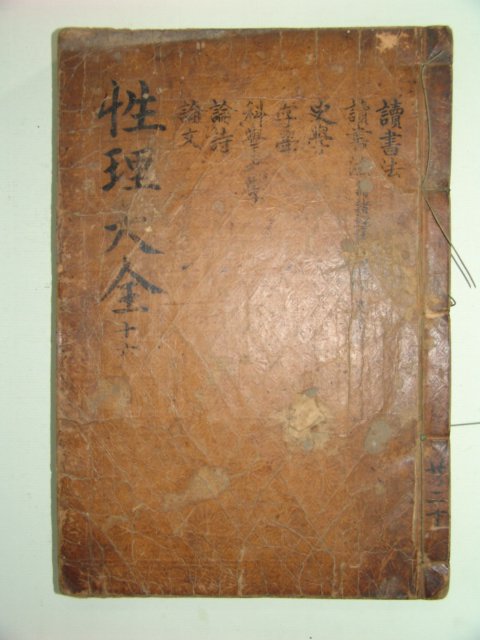 性理大全 十六
讀書法
讀書法
史學
字學
科擧之學
論詩
論文
共二十